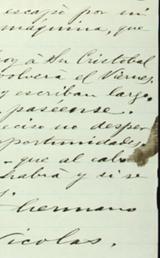 escapó por mi
máquina, que
hoy á Sn Cristobal
volverá el Viernes,
y escriban largo.
paséense.
ciso no desper
oportunidades,
que al cabo
habrá y si se
hermano
Nicolas.